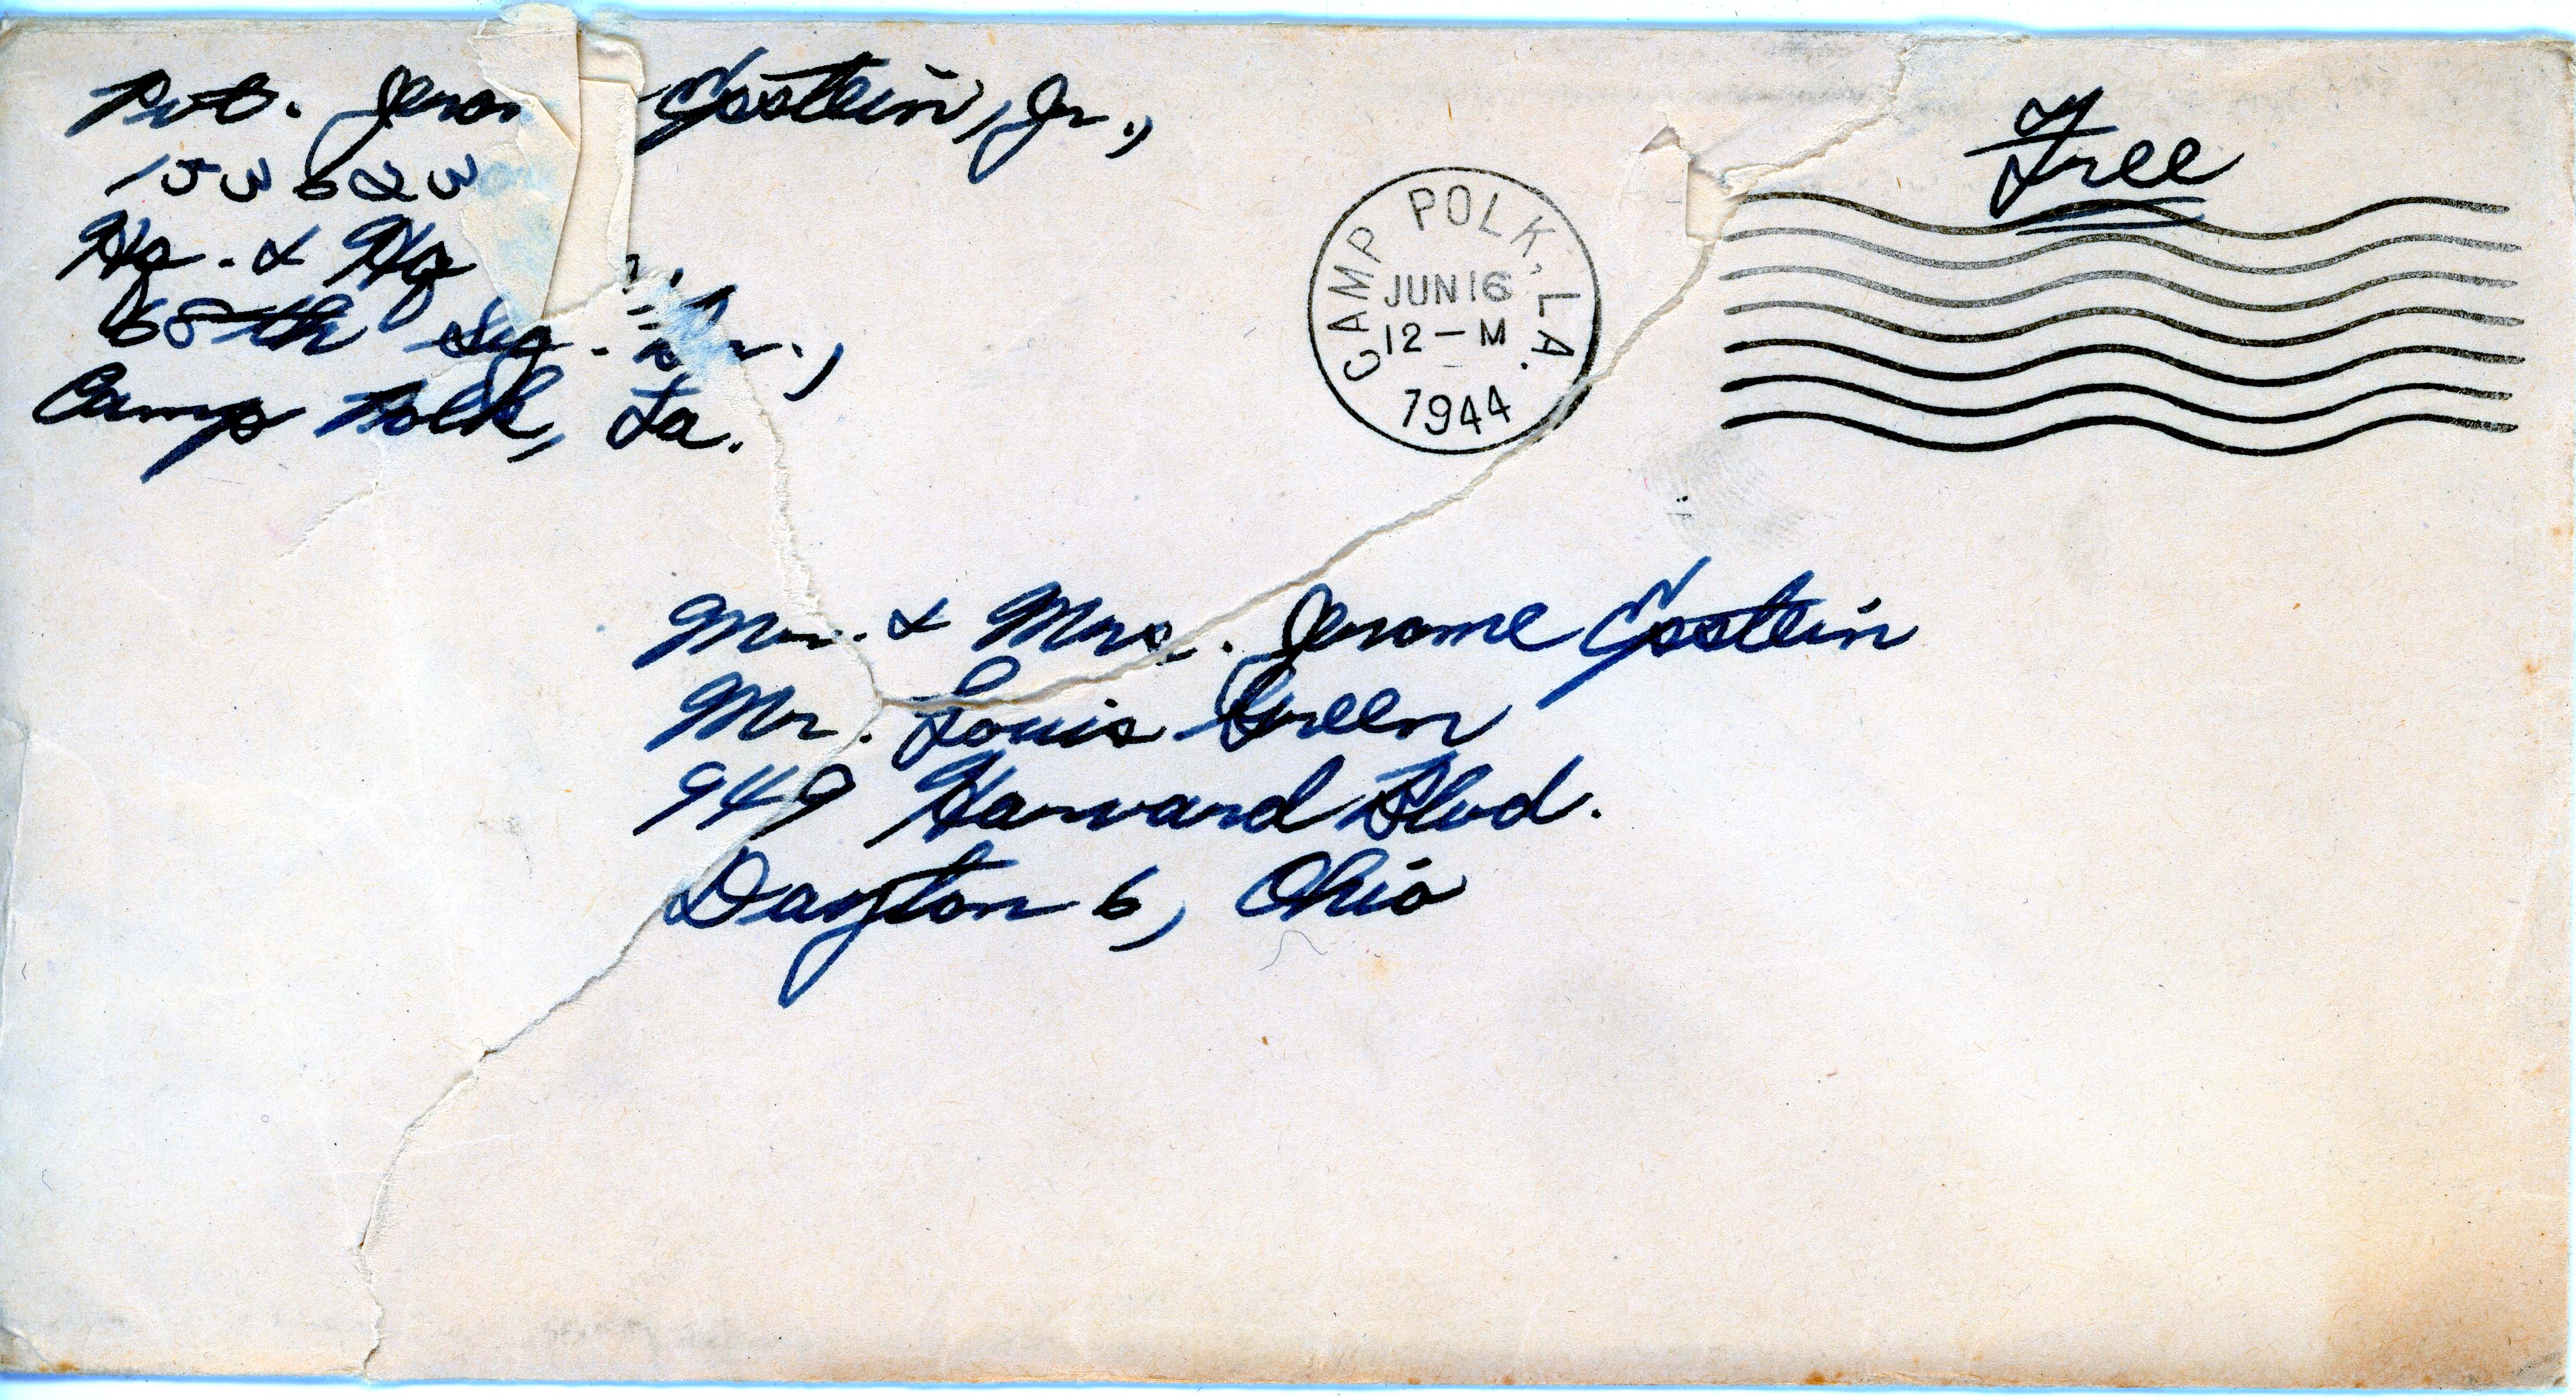 Pvt. Jerome Epstein, Jr.,
153623
Hq. & Hq
68th Sig. Bn.,
Camp Polk, La.
Free
CAMP POLK, LA.
JUN 16
12 - M
1944
Mr. & Mrs. Jerome Epstein
Mr. Louis Green
949 Harvard Blvd.
Dayton 6, Ohio